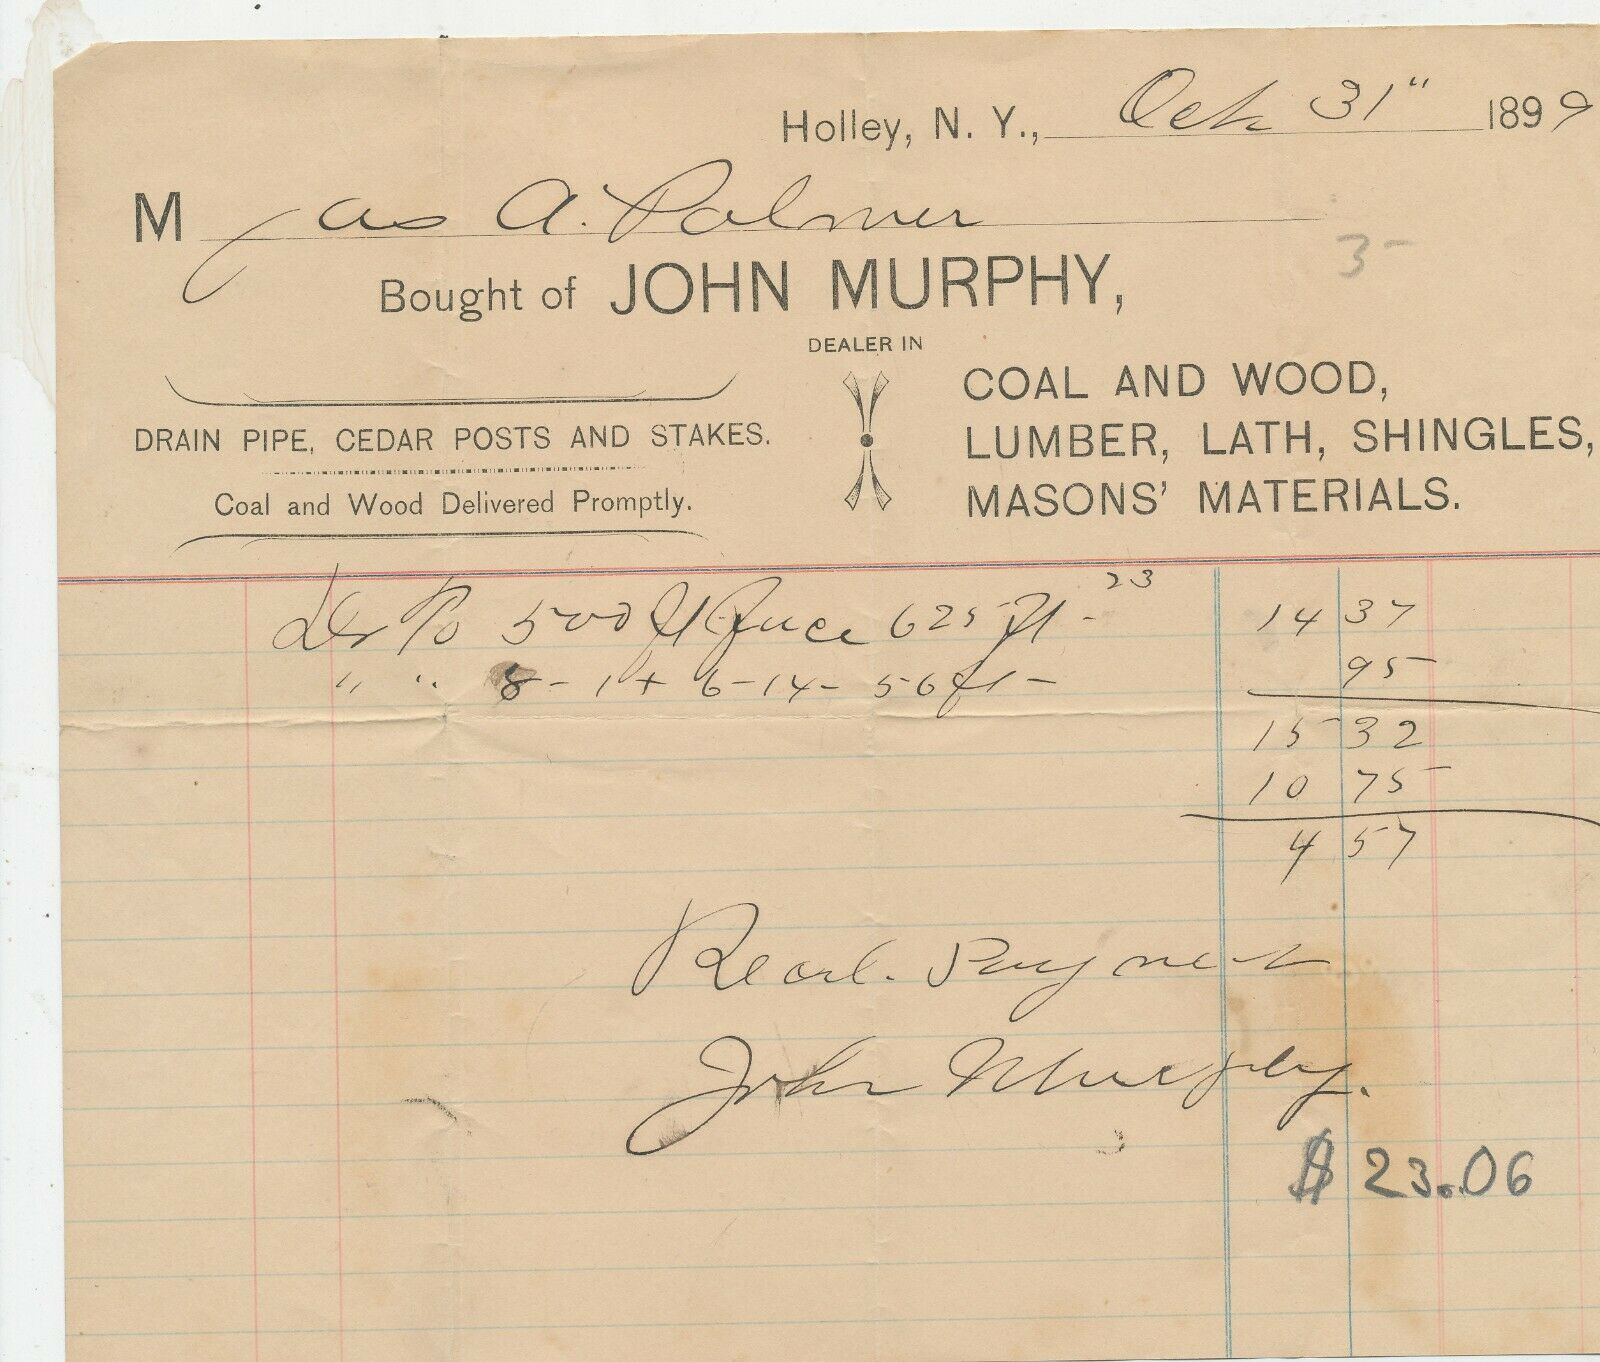 Holley, N. Y., Oct 31" 1899
M Jas A. Palmer
3-
Bought of JOHN MURPHY,
DEALER IN
COAL AND WOOD,
LUMBER, LATH, SHINGLES,
MASONS' MATERIALS.
DRAIN PIPE, CEDAR POSTS AND STAKES.
Coal and Wood Delivered Promptly.
Dr To 500 ft 625 ft - 23 14 37
" " 8-1+ 6-14- 56 ft - 95
15 32
10 75
4 57
Recd. Payment
John Murphy.
$ 23.06